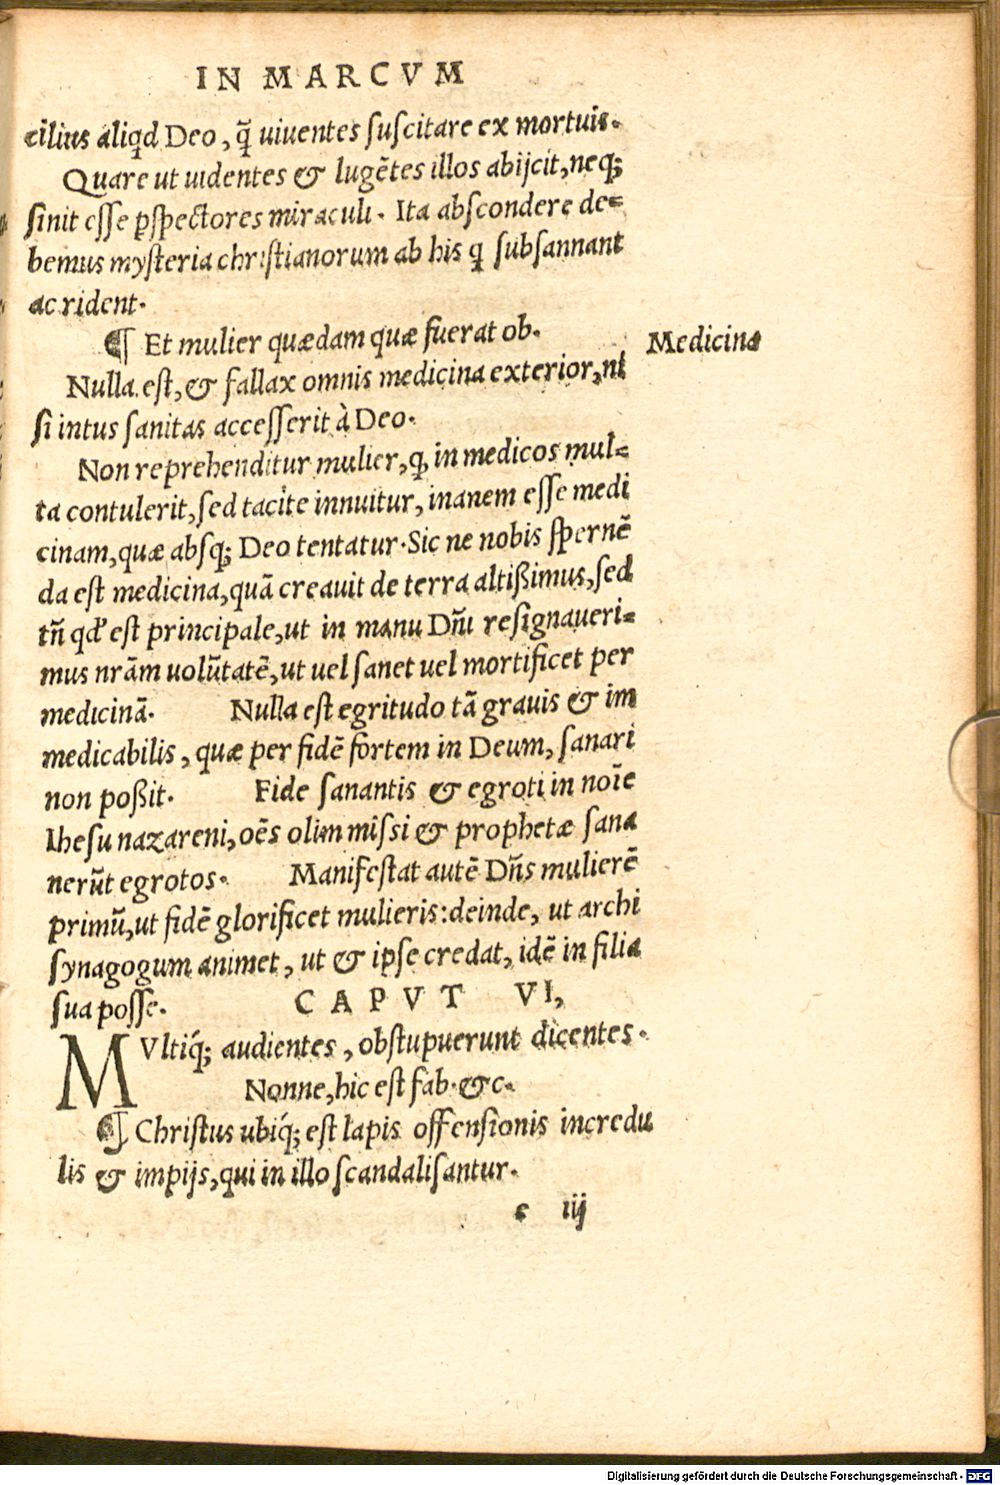 IN MARCVM
cilius aliqd Deo, q̃ uiuentes ſuſcitare ex mortuis.
Quare ut uidentes & lugẽtes illos abijcit, neq;
ſinit eſſe pſpectores miraculi. Ita abſcondere de=
bemus myſteria chriſtianorum ab his q ſubſannant
ac rident.
¶ Et mulier quædam quæ fuerat ob.
Medicina
Nulla eſt, & fallax omnis medicina exterior, ni
ſi intus ſanitas acceſſerit à Deo.
Non reprehenditur mulier, q, in medicos mul=
ta contulerit, ſed tacite innuitur, inanem eſſe medi
cinam, quæ abſq; Deo tentatur. Sic ne nobis ſpernẽ
da eſt medicina, quã creauit de terra altißimus, ſed
tñ qd' eſt principale, ut in manu Dñi reſignaueri=
mus nrãm uolũtatẽ, ut uel ſanet uel mortificet per
medicinã. Nulla eſt egritudo tã grauis & im
medicabilis, quæ per fidẽ fortem in Deum, ſanari
non poßit. Fide ſanantis & egroti in noĩe
Iheſu nazareni, oẽs olim miſsi & prophetæ ſana
nerũt egrotos. Manifeſtat autẽ Dñs mulierẽ
primũ, ut fidẽ glorificet mulieris: deinde, ut archi
ſynagogum animet, ut & ipſe credat, idẽ in filia
ſua poſſe. CAPVT VI,
MVltiq́; audientes, obſtupuerunt dicentes.
Nonne, hic eſt fab. &c.
¶ Chriſtus ubiq́; eſt lapis offenſionis incredu
lis & impijs, qui in illo ſcandaliſantur.
c iij
Digitalisierung gefördert durch die Deutsche Forschungsgemeinschaft - DFG